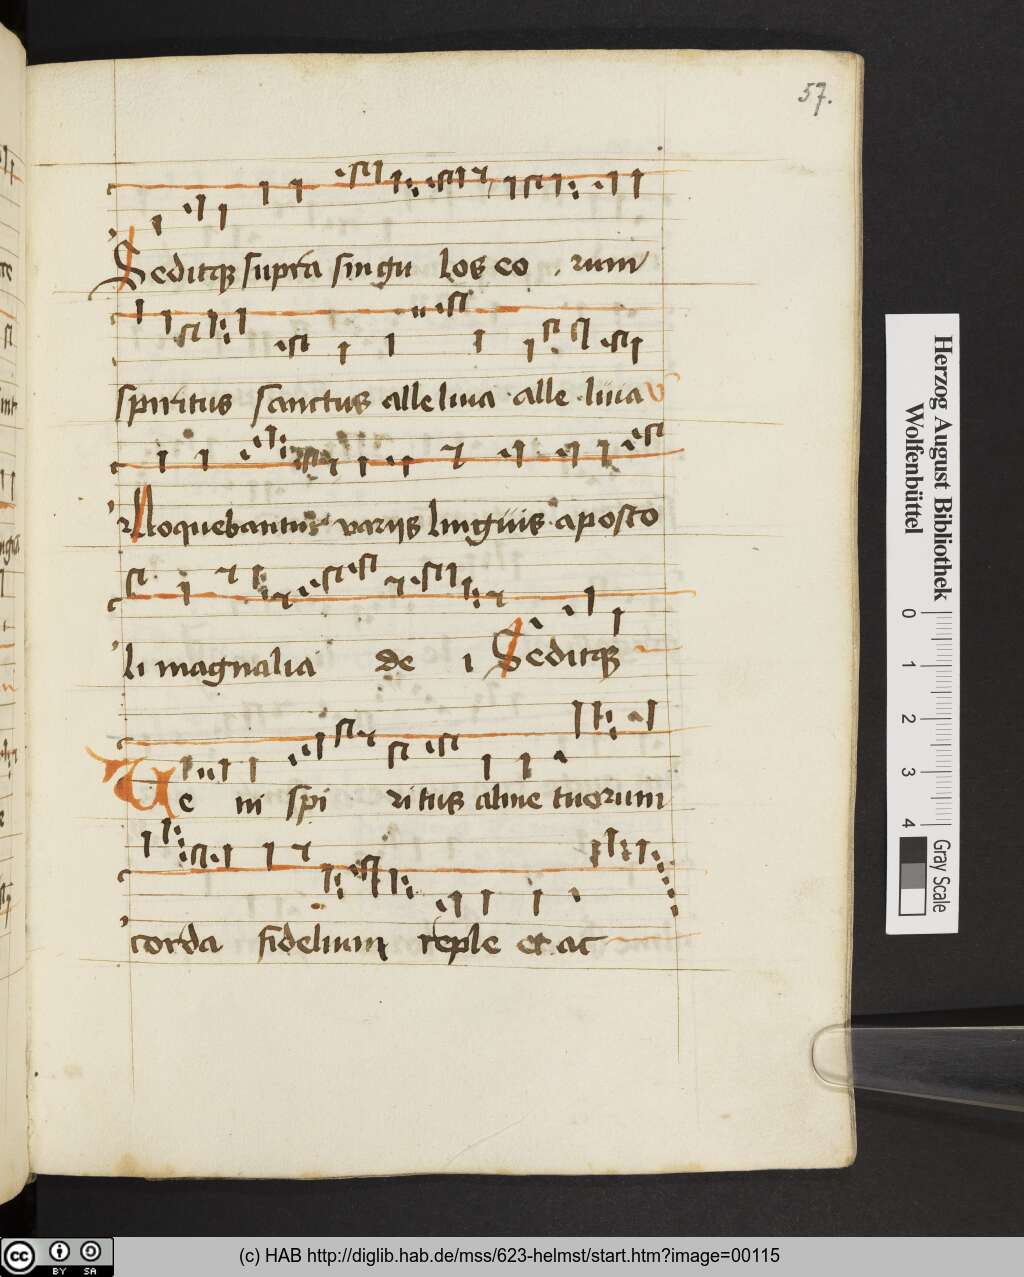 57.
Seditq̃ supra singu los eo . rum
spiritus sanctus alleluia · alle · luia v
Loquebantur variis linguis aposto
li magnalia de i Seditq̃
Ve ni spi ritus alme tuorum
corda fidelium reple et ac
Herzog August Bibliothek
Wolfenbüttel
0 1 2 3 4
Gray Scale
cc BY SA
(c) HAB http://diglib.hab.de/mss/623-helmst/start.htm?image=00115